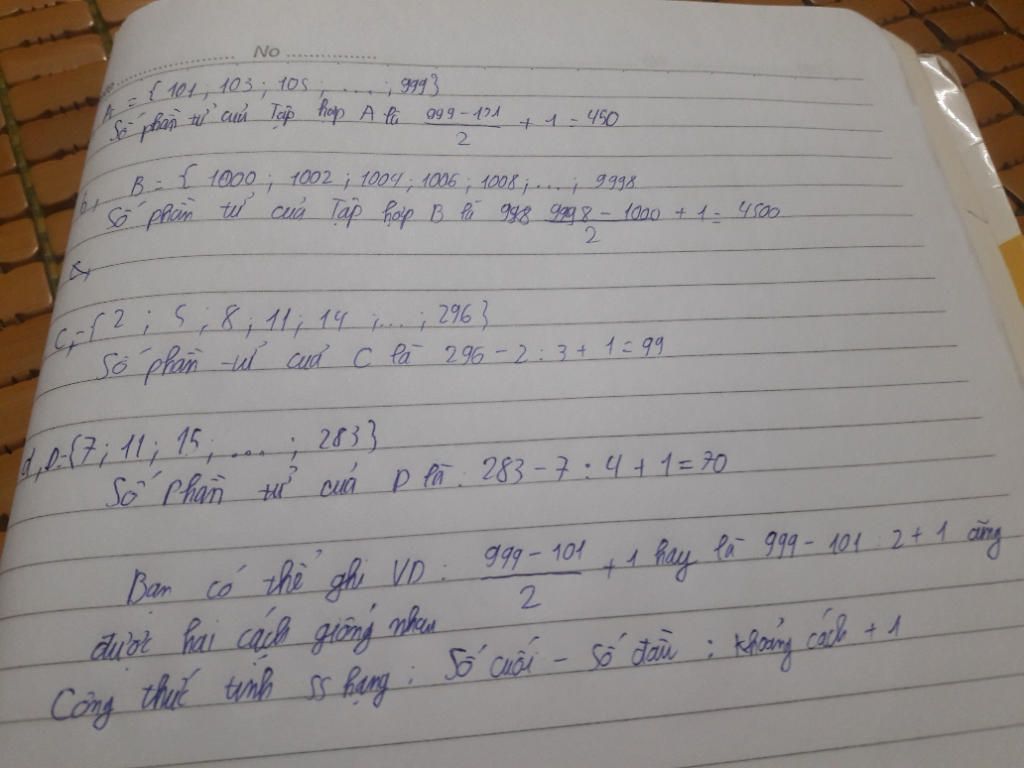 No
A = { 101 ; 103 ; 105 ; .... ; 999}
Số phần tử của Tập hợp A là 999 - 101 / 2 + 1 = 450
b, B = { 1000 ; 1002 ; 1004 ; 1006 ; 1008 ; ... ; 9998
Số phần tử của Tập hợp B là 9998 - 1000 / 2 + 1 = 4500
C, = { 2 ; 5 ; 8 ; 11 ; 14 ; ... ; 296 }
Số phần tử của C là 296 - 2 : 3 + 1 = 99
d, D = {7 ; 11 ; 15 ; .... ; 283}
Số Phần tử của D là : 283 - 7 : 4 + 1 = 70
Bạn có thể ghi VD : 999 - 101 / 2 + 1 hay là 999 - 101 : 2 + 1 cũng
được hai cách giống nhau
Công thức tính ss hạng : Số cuối - Số đầu : khoảng cách + 1